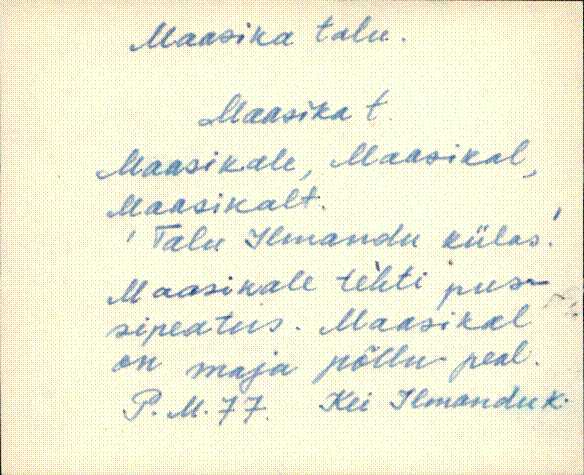 Maasika talu.
Maasika t.
Maasikale, Maasikal,
Maasikalt.
'Talu Ilmandu külas.'
Maasikale tehti pus-
sipeatus. Maasikal
on maja põllu peal.
P. M. 77. Kei Ilmandu k.